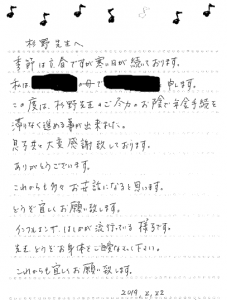 杉野先生へ
季節は立春ですが寒い日が続いております。
私は の母で と申します。
この度は、杉野先生のご尽力のお陰で年金手続を
滞りなく進める事が出来ました。
息子共々大変感謝致しております。
ありがとうございます。
これからも多々お世話になると思います。
どうぞ宜しくお願い致します。
インフルエンザ、はしかが流行っている様です。
先生どうぞお身体をご自愛なさって下さい。
これからも宜しくお願い致します。
2019, 2, 22